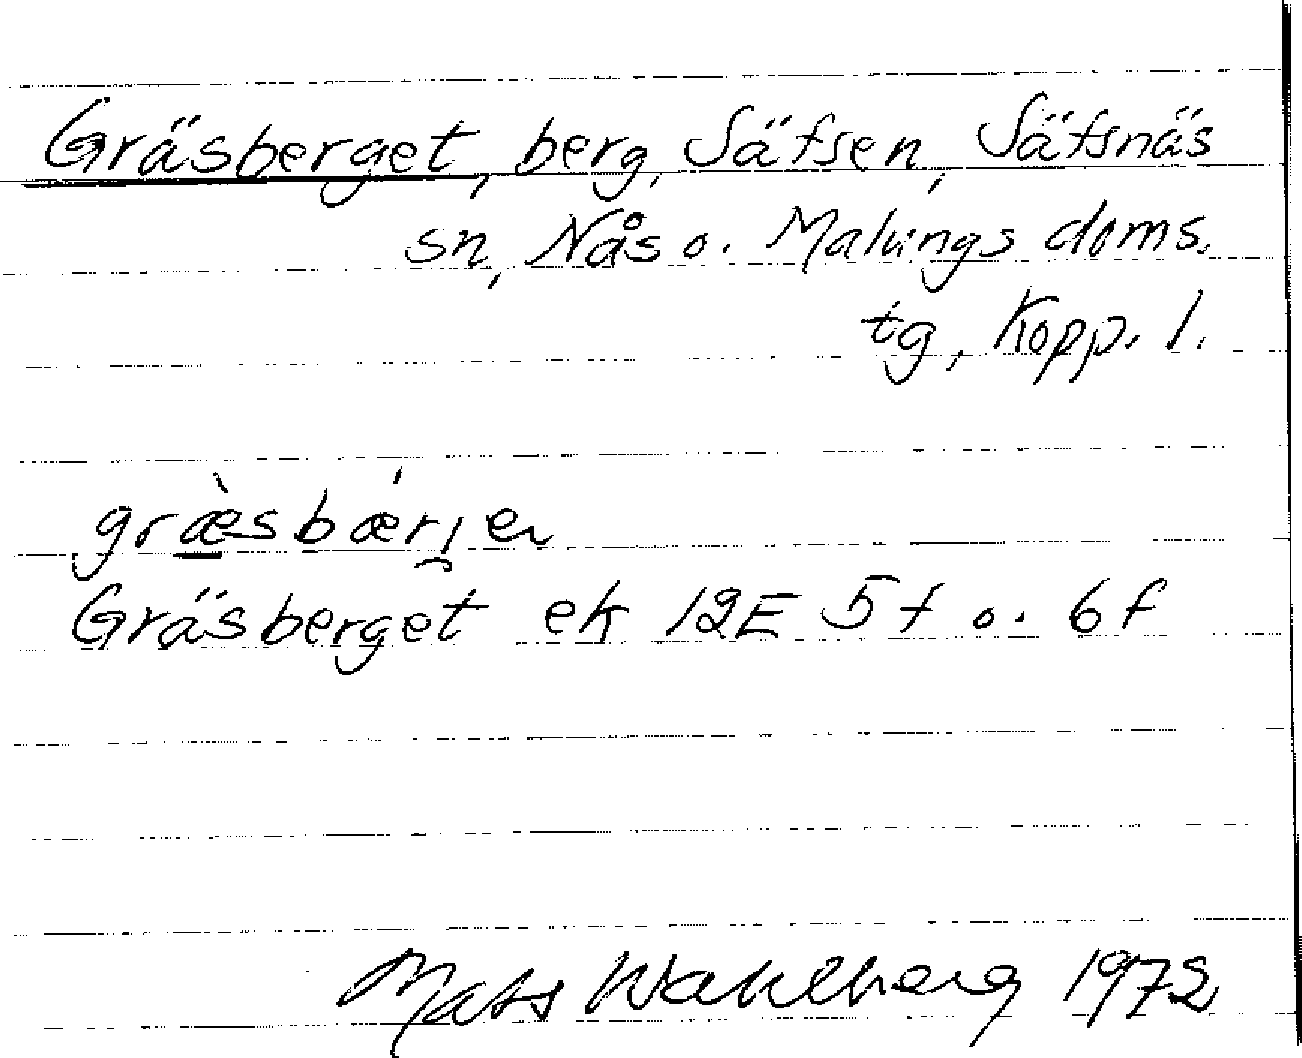 Gräsberget, berg, Säfsen, Säfsnäs
sn, Nås o. Malungs doms.
tg, Kopp. l.
græ̀sbæŕ̯ɪen
Gräsberget ek 12E 5f o. 6f
Mats Wahlberg 1972